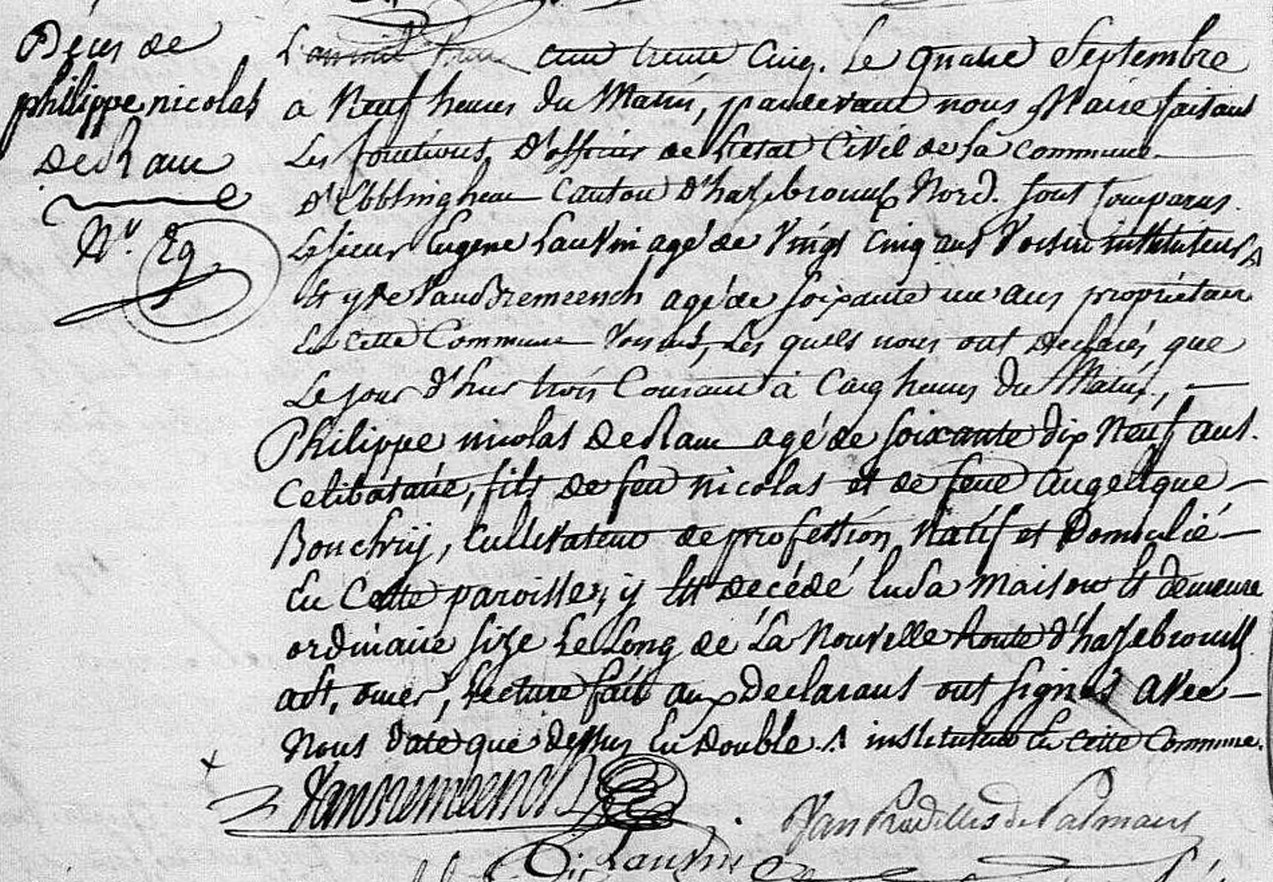 Déces de
philippe nicolas
DeRam
N.º 29.
L'an mil huit cent trente cinq. Le quatre Septembre
à Neuf heures du Matin, pardevant nous Maire faisant
Les fonctions d'officier de L'etat Civil de la commune
D'Ebblinghem Canton d'hazebrouck Nord. sont Comparus.
Le sieur Eugene Lauvin agé de Vingt cinq ans Voisin instituteur
Et agé de soixante un ans propriétaire
En cette Commune Voisins, Les quels nous ont declarés que
Le jour d'hier trois Courant à Cinq heures du Matin,
Philippe nicolas DeRam agé de soixante dix Neuf ans.
Celibataire, fils de feu nicolas et de feue angelique
Bouchrij, Cultivateur de profession, Natif et Domicilié
En Cette paroisse, y Est decédé en Sa Maison Et demeure
ordinaire size Le Long de La Nouvelle Route d'hazebrouck
a St, omer, Lecture fait aux Declarans ont signés avec
Nous date que dessus En Double. instituteur En cette Commune.
VanBremeersch
Lauvin